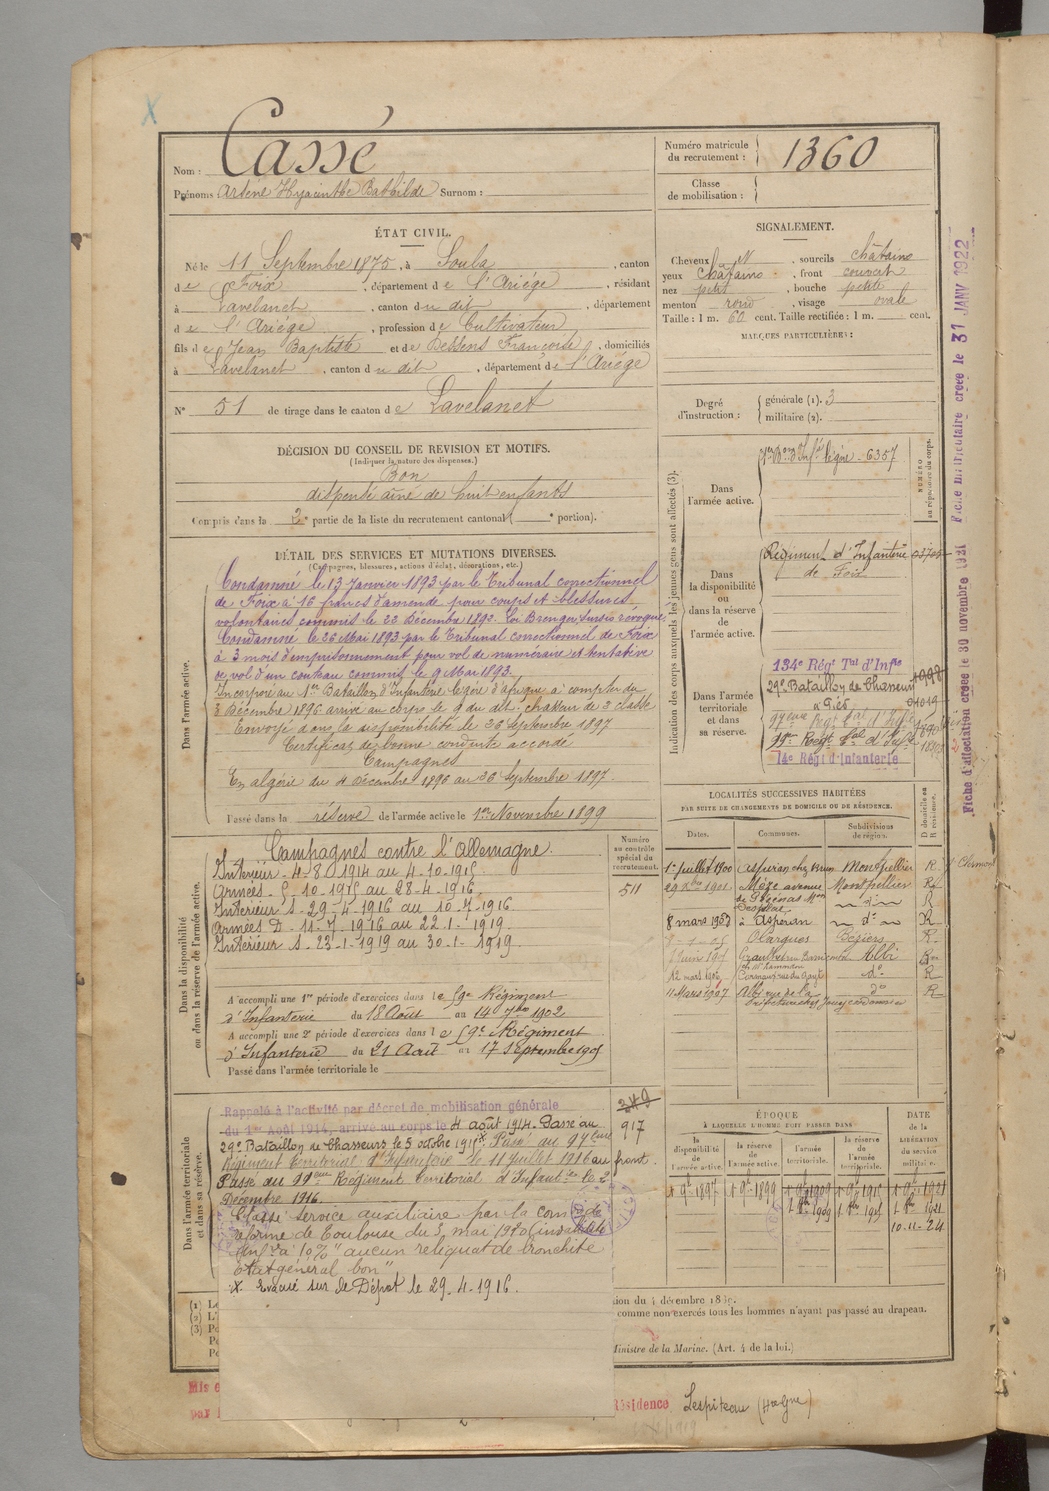 Nom : Cassé
Prénoms Arsène Hyacinthe Bathilde Surnom :
Numéro matricule du recrutement : 1360
Classe de mobilisation :
ÉTAT CIVIL.
Né le 11 Septembre 1875, à Soula, canton
de Foix, département de l'Ariége, résidant
à Lavelanet, canton du dit, département
de l'Ariége, profession de Cultivateur
fils de Jean Baptiste et de Dessens Françoise, domiciliés
à Lavelanet, canton du dit, département de l'Ariége
N° 51 de tirage dans le canton de Lavelanet
SIGNALEMENT.
Cheveux N, sourcils châtains
yeux châtains, front couvert
nez petit, bouche petite
menton rond, visage ovale
Taille : 1 m. 60 cent. Taille rectifiée : 1 m. cent.
MARQUES PARTICULIÈRES :
Degré d'instruction : générale (1). 3
militaire (2).
DÉCISION DU CONSEIL DE REVISION ET MOTIFS.
(Indiquer la nature des dispenses.)
Bon
dispensé aîné de huit enfants
Compris dans la 2e partie de la liste du recrutement cantonal ( e portion).
DÉTAIL DES SERVICES ET MUTATIONS DIVERSES.
(Campagnes, blessures, actions d'éclat, décorations, etc.)
Dans l'armée active.
Condamné le 13 Janvier 1893 par le Tribunal correctionnel
de Foix à 16 francs d'amende pour coups et blessures
volontaires commis le 22 Décembre 1892. Loi Berenger, Sursis révoqué.
Condamné le 26 Mai 1893 par le Tribunal correctionnel de Foix
à 3 mois d'emprisonnement pour vol de numéraire et tentative
de vol d'un couteau commis le 9 Mai 1893.
Incorporé au 1er Bataillon d'Infanterie légère d'Afrique à compter du
3 Décembre 1896 arrivé au corps le 9 du dit. chasseur de 2e classe
Envoyé dans la disponibilité le 26 Septembre 1897
Certificat de bonne conduite accordé
Campagnes
En algérie du 4 Décembre 1896 au 26 Septembre 1897.
Passé dans la réserve de l'armée active le 1er Novembre 1899
Dans la disponibilité ou dans la réserve de l'armée active.
Campagnes contre l'Allemagne.
Intérieur - 4-8-1914 au 4-10-1915
Armées - 5-10-1915 au 28-4-1916.
Intérieur S - 29-4-1916 au 10-7-1916
Armées D - 11-7-1916 au 22-1-1919.
Intérieur S - 23-1-1919 au 30-1-1919.
Numéro au contrôle spécial du recrutement.
511
A accompli une 1re période d'exercices dans le 59e Régiment
d'Infanterie du 18 Août au 14 7bre 1902
A accompli une 2e période d'exercices dans le 59e Régiment
d'Infanterie du 21 Août au 17 Septembre 1905
Passé dans l'armée territoriale le
Dans l'armée territoriale et dans sa réserve.
Rappelé à l'activité par décret de mobilisation générale
du 1er Août 1914, arrivé au corps le 4 août 1914. Passé au
29e Bataillon de Chasseurs le 5 octobre 1915. Passé au 97eme
Régiment territorial d'Infanterie le 11 juillet 1916 au front.
Passé du 99eme Régiment territorial d'Infanterie le 2
Décembre 1916.
917
Classé service auxiliaire par la com de
réforme de Toulouse du 3 mai 1920 (invalidité
infre à 10% "aucun reliquat de bronchite
Etat général bon"
x. Evacué sur le Dépôt le 29.4.1916.
Indication des corps auxquels les jeunes gens sont affectés (3).
NUMÉRO au répertoire du corps.
Dans l'armée active.
6357
Dans la disponibilité ou dans la réserve de l'armée active.
Régiment d'Infanterie
de Foix
Dans l'armée territoriale et dans sa réserve.
134e Régt Tal d'Infie
29e Bataillon de Chasseurs
à Pied
97eme Regt Tal d'Infie
99me Regt Tal d'Infie
14e Régt d'Infanterie
LOCALITÉS SUCCESSIVES HABITÉES
PAR SUITE DE CHANGEMENTS DE DOMICILE OU DE RÉSIDENCE.
Dates. Communes. Subdivisions de région. D domicile ou R résidence.
1er juillet 1900 Aspiran Montpellier R Clermont
29 Xbre 1901 Mèze avenue de Pézenas Montpellier R
8 mars 1903 à Aspéran do R
Olargues Béziers R
Albi
12 mars 1906 Carmaux do R
11 Mars 1907 Albi rue de la do R
ÉPOQUE
À LAQUELLE L'HOMME DOIT PASSER DANS
la disponibilité de l'armée active.
la réserve de l'armée active.
l'armée territoriale.
la réserve de l'armée territoriale.
DATE de la LIBÉRATION du service militaire.
1 9bre 1897 1 9bre 1899 1 9bre 1909 1 9bre 1915 1 9bre 1921
10-11-24
comme non exercés tous les hommes n'ayant pas passé au drapeau.
Ministre de la Marine. (Art. 4 de la loi.)
Résidence Lespiteau (Hte Gne)
Fiche matriculaire créée le 31 JANV 1922
Fiche d'affectation créée le 30 novembre 1921